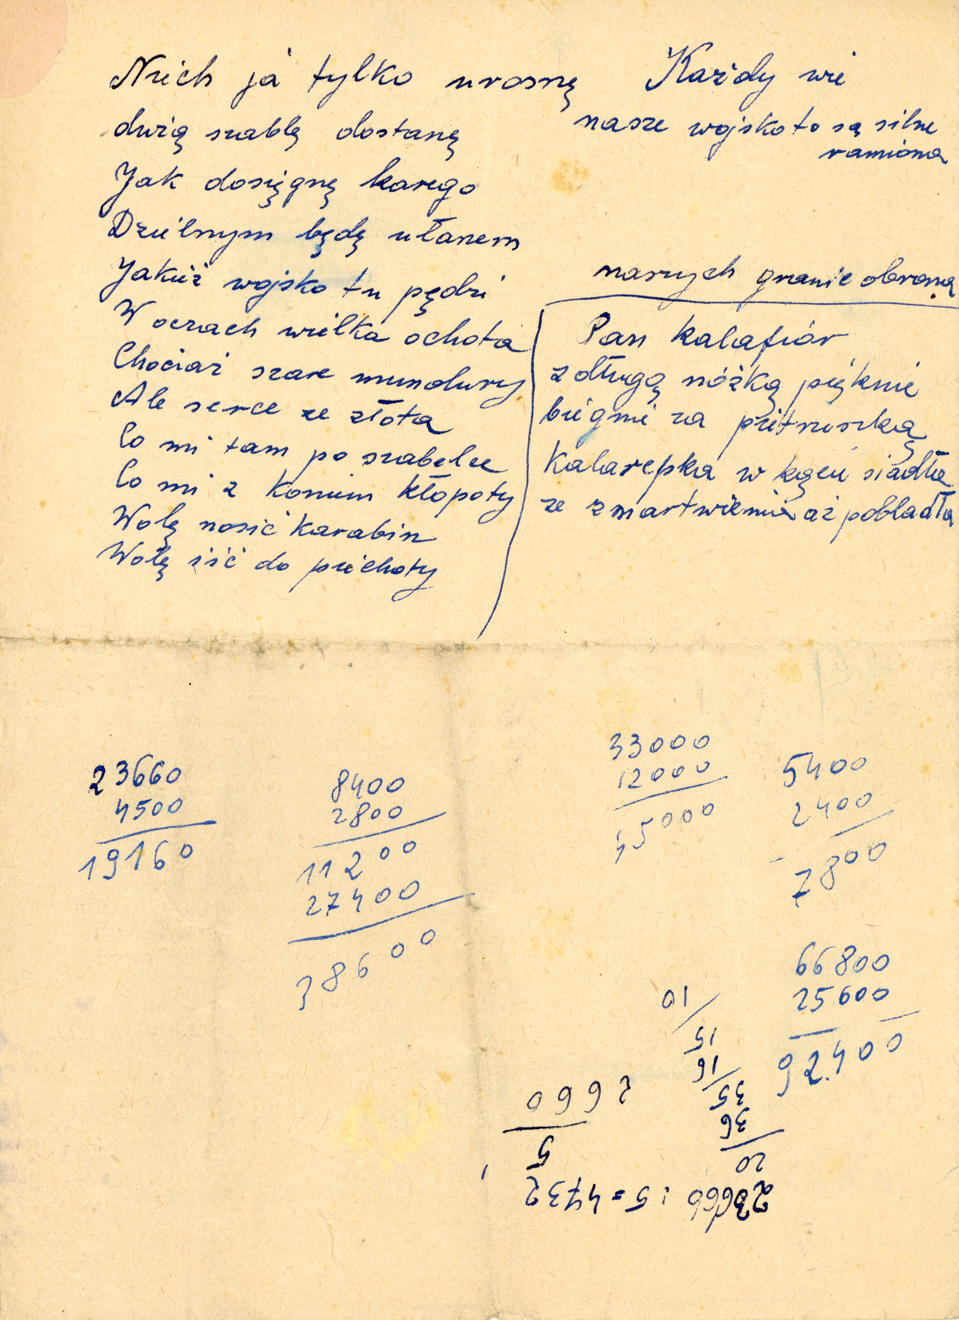 Niech ja tylko urosnę
dwię szablę dostanę
Jak dosięgnę karego
Dzielnym będę ułanem
Jakież wojsko tu pędzi
W oczach wielka ochota
Chociaż szare mundury
Ale serce ze złota
Co mi tam po szabelce
Co mi z koniem kłopoty
Wolę nosić karabin
Wolę iść do piechoty
Każdy wie
nasze wojsko to są silne
ramiona
naszych granic obroną
Pan kalafiór
z długą nóżką pięknie
biegnie za pietruszką
Kalarepka w kącie siadła
ze zmartwienia aż pobladła
23660
4500
19160
8400
2800
11200
27400
38600
33000
12000
45000
5400
2400
7800
66800
25600
92400
23660 : 5 = 4732
20
36
35
16
15
10
5
2660